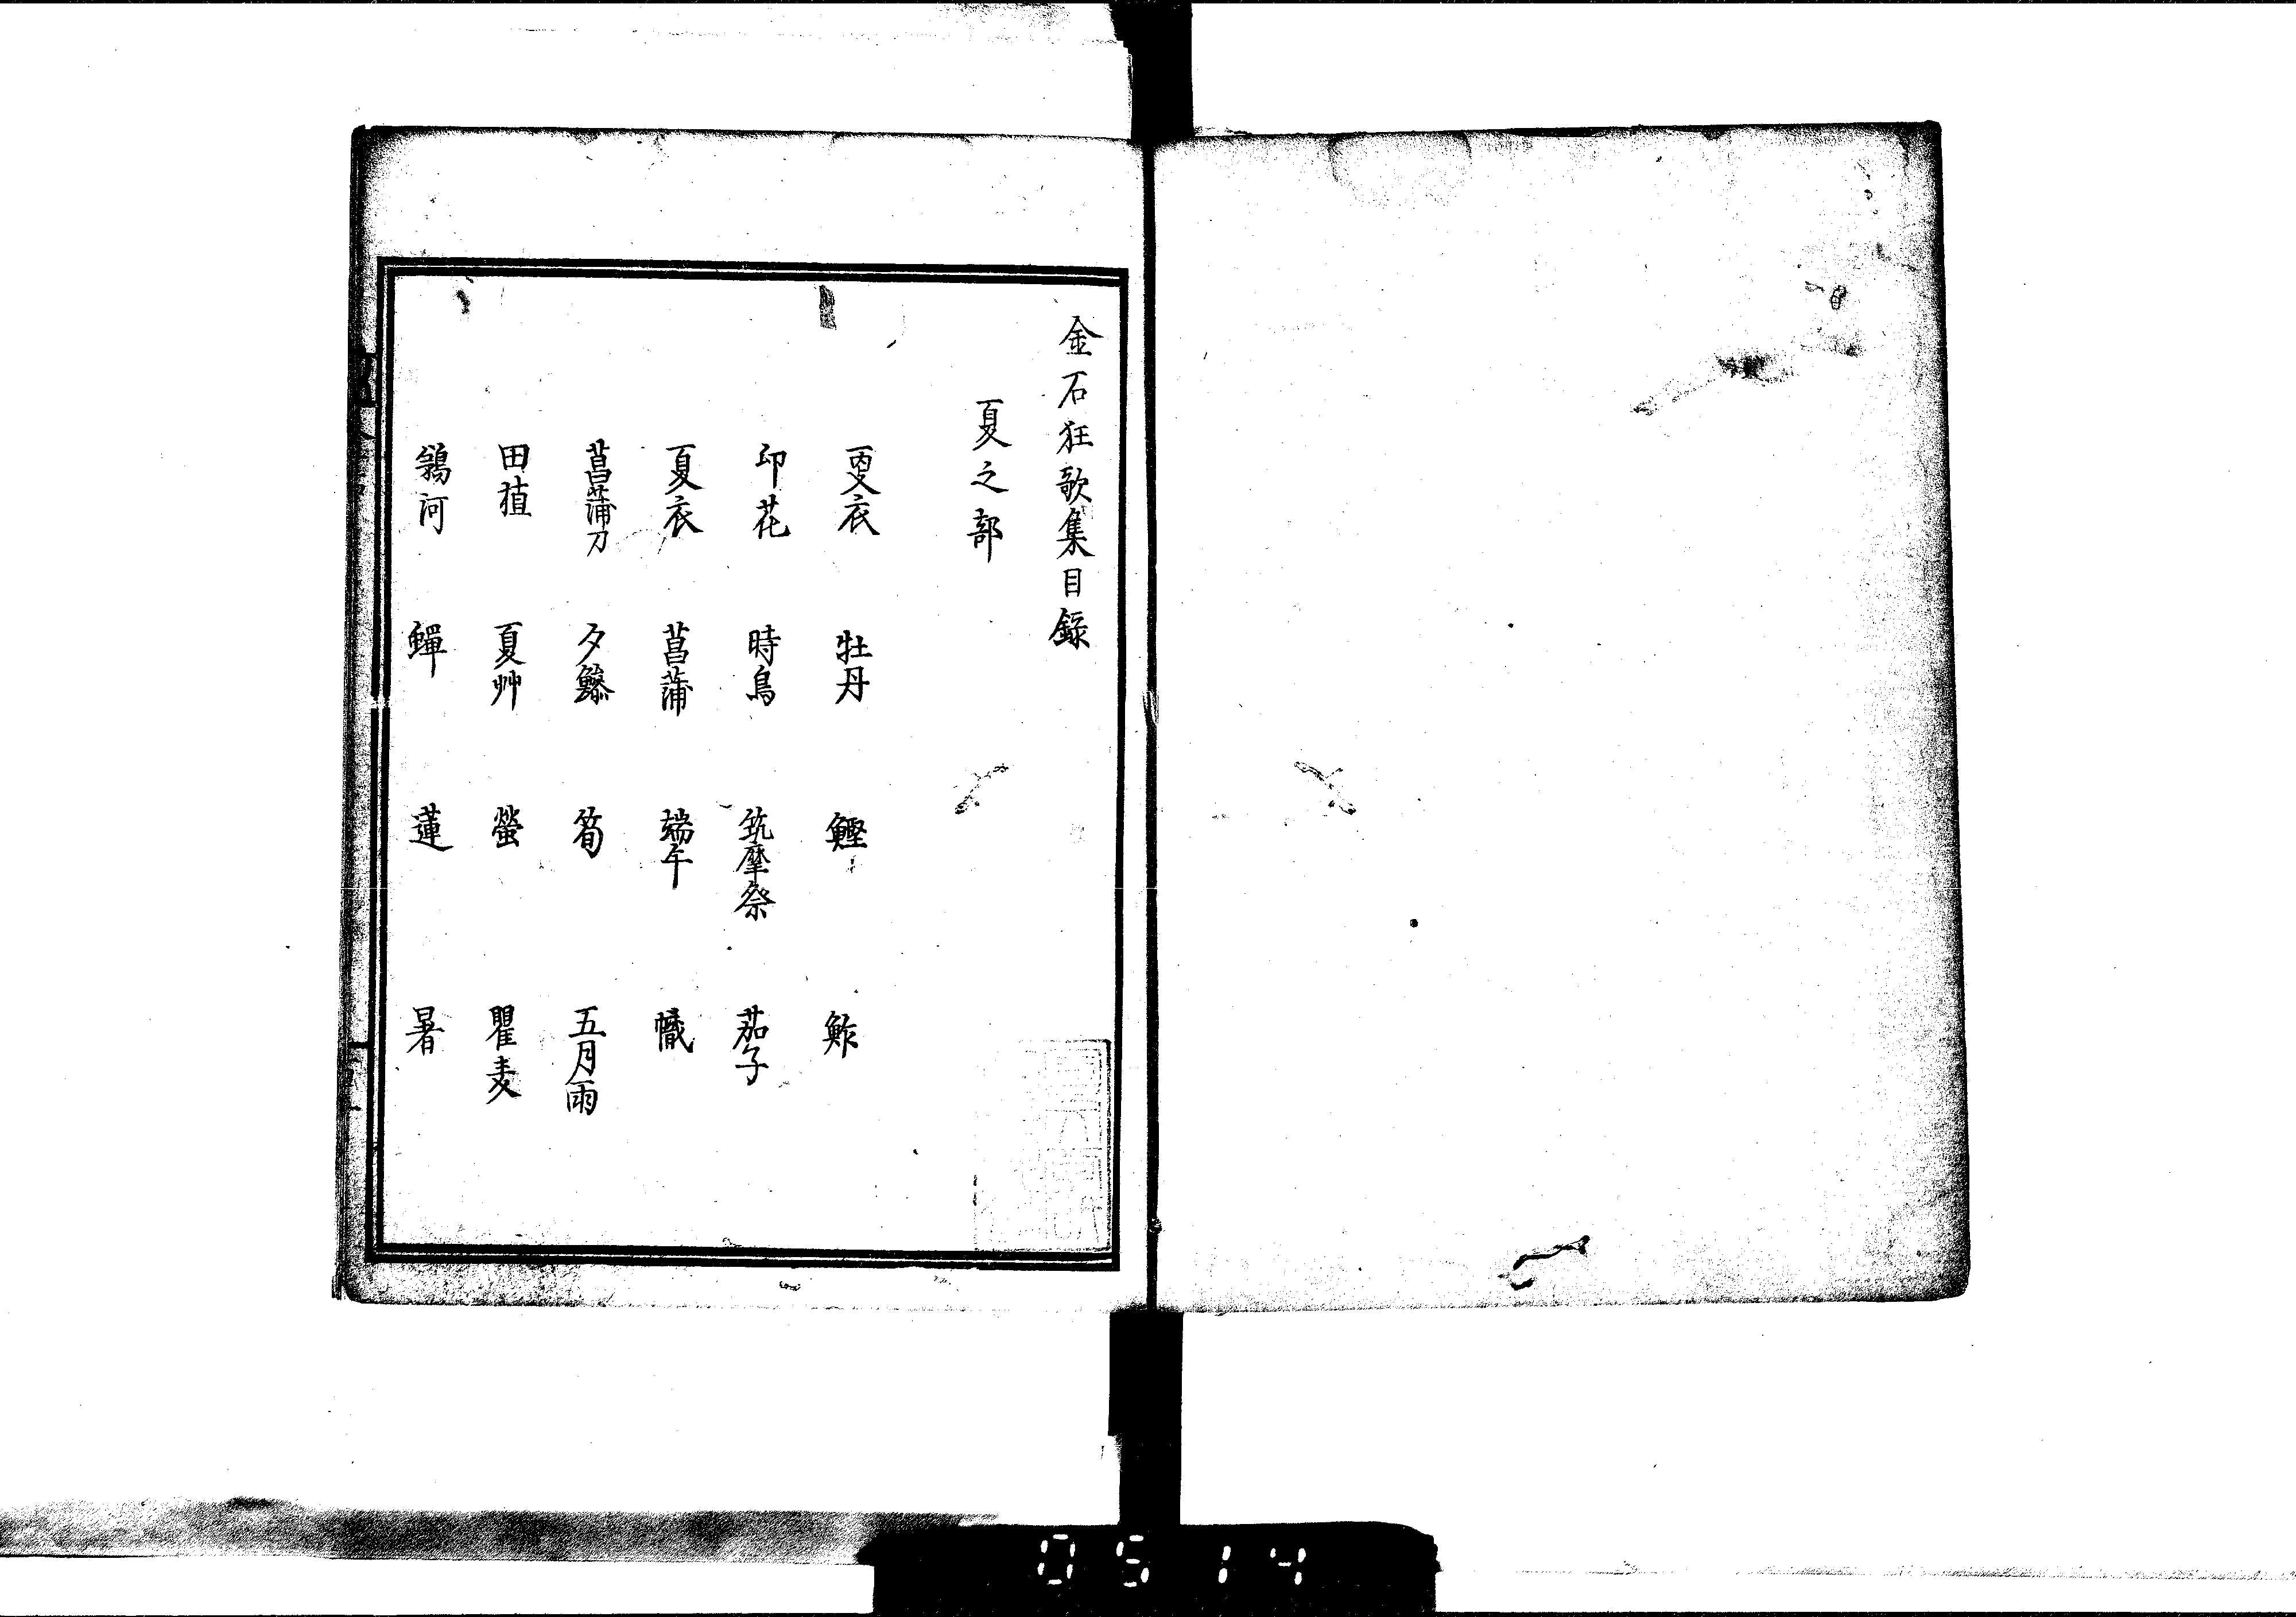 金石狂歌集目録
夏之部
更衣 牡丹 鰹 鮓
卯花 時鳥 筑摩祭 茄子
夏衣 菖蒲 端午 幟
菖蒲刀 夕鰺 筍 五月雨
田植 夏艸 螢 瞿麦
鵜河 蟬 蓮 暑
0514